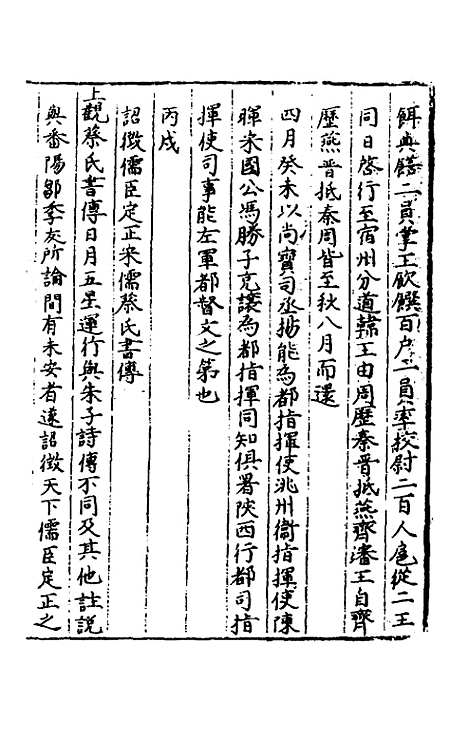 餌典饍二員掌王飲饌百戶一員率校尉二百人扈從二王
同日啓行至宿州分道韓王由周歷秦晉抵燕齊瀋王自齊
歷燕晉抵秦周皆至秋八月而還
四月癸未以尚寶司丞楊能為都指揮使洮州衛指揮使陳
暉宋國公馮勝子克讓為都指揮同知俱署陝西行都司指
揮使司事能左軍都督文之第也
丙戌
詔徵儒臣定正宋儒蔡氏書傳
上觀蔡氏書傳日月五星運行與朱子詩傳不同及其他註説
與番陽鄒季友所論間有未安者遂詔徵天下儒臣定正之